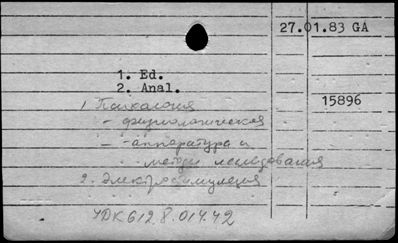 27.01.83 GA
1. Ed.
2. Anal.
15896
1. Психология
- физиологическая
- - аппаратура и
методы исследования
2. Электростимуляция
УДК 612.8.014.42